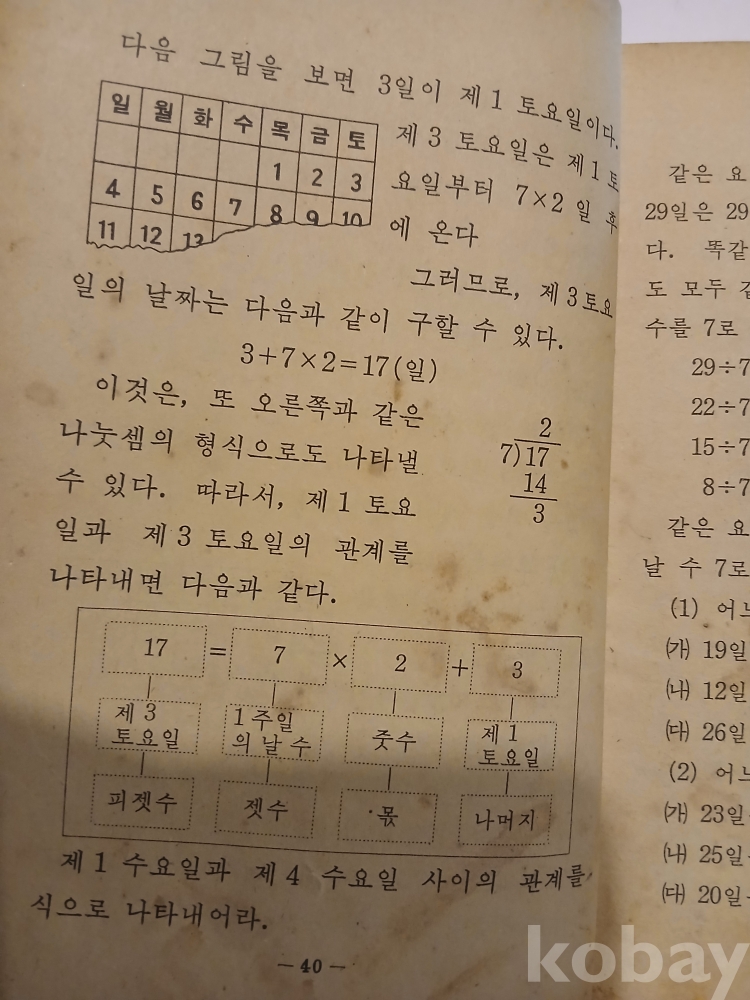 다음 그림을 보면 3일이 제1 토요일이다.
일 월 화 수 목 금 토
1 2 3
4 5 6 7 8 9 10
11 12 13
제3 토요일은 제1 토
요일부터 7×2일 후
에 온다
그러므로, 제3토요
일의 날짜는 다음과 같이 구할 수 있다.
3+7×2=17(일)
이것은, 또 오른쪽과 같은
나눗셈의 형식으로도 나타낼
수 있다. 따라서, 제1 토요
일과 제3 토요일의 관계를
나타내면 다음과 같다.
2
7)17
14
3
17 = 7 × 2 + 3
제3 토요일 1주일의 날 수 줏수 제1 토요일
피젯수 젯수 몫 나머지
제1 수요일과 제4 수요일 사이의 관계를
식으로 나타내어라.
-40-
같은 요
29일은 29
다. 똑같
도 모두
수를 7로
29÷7
22÷7
15÷7
8÷7
같은 요
날 수 7로
(1) 어느
㈎ 19일
㈏ 12일
㈐ 26일
(2) 어느
㈎ 23일
㈏ 25일
㈐ 20일
kobay